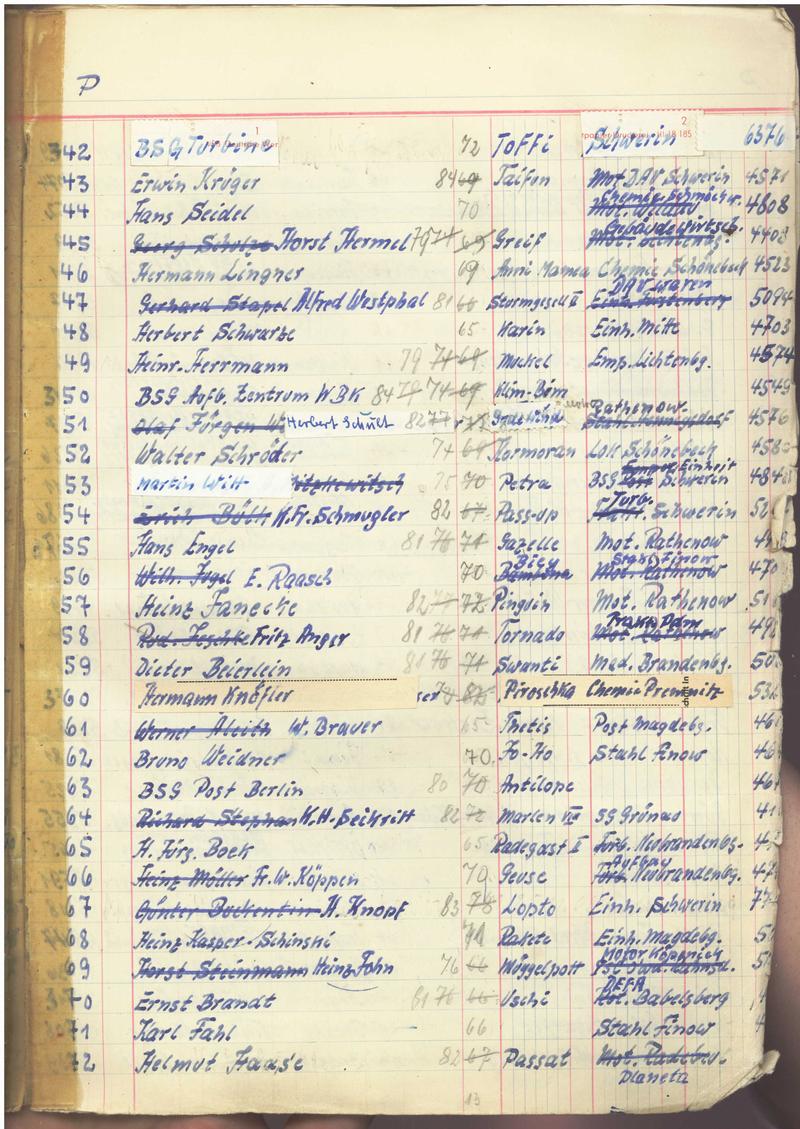 P
342 BSG Turbine 72 Toffi Schwerin 6376
43 Erwin Krüger 84 69 Taifun Mot. DAV Schwerin 457
44 Hans Seidel 70 Chemie Schmöckw. Mot. Wildau 4608
45 Georg Schulze Horst Hermel 79 74 65 Greif Gebäudewirtsch. 4408
46 Hermann Lingner 69 Anni Mamea Chemie Schönebeck 4523
47 Gerhard Stapel Alfred Westphal 81 66 Sturmgesell II DAV Waren 5094
48 Herbert Schwarze 65 Karin Einh. Mitte 4703
49 Heinr. Herrmann 79 74 69 Muckel Emp. Lichtenbg. 4574
350 BSG Aufb. Zentrum WBK 84 79 74 69 Klim-Bim 4549
51 Olaf Jürgen Herbert Schult 82 77 Rathenow. 4576
52 Walter Schröder 74 Kormoran Lok Schönebeck 458
53 Martin Witt 75 70 Petra BSG Schwerin 484
54 Erich Böth K.Fr. Schmugler 82 67 Pass-up Turb. Schwerin 52
55 Hans Engel 81 76 71 Gazelle Mot. Rathenow
56 Wilh. Jugel E. Raasch 70 Stahl Finow Mot. Rathenow 470
57 Heinz Janecke 82 77 72 Pinguin Mot. Rathenow 51
58 Rud. Jeschke Fritz Anger 81 76 71 Tornado Mot. Rathenow 49
59 Dieter Beierlein 81 76 71 Swanti Med. Brandenbg. 50
360 Hermann Knöfler Piroschka Chemie Premnitz 532
61 W. Brauer 65 Thetis Post Magdebg. 46
62 Bruno Weidner 70 Jo-Ho Stahl Finow 46
63 BSG Post Berlin 80 70 Antilope 46
64 Richard Stephan K.H. Seikritt 82 72 Marlen VII SG Grünau 41
65 H. Jürg. Bock 65 Radegast II Turb. Neubrandenbg.
66 Heinz Möller Fr. W. Köppen 70 Geuse Aufbau Turb. Neubrandenbg.
67 Günter Bockentin H. Knopf 83 78 Lopto Einh. Schwerin 77
68 Heinz Kasper-Schinski 71 Rakete Einh. Magdebg. 5
69 Horst Steinmann Heinz John 76 66 Müggelpott Motor Köpenick 5
370 Ernst Brandt 81 76 66 Uschi DEFA Babelsberg
71 Karl Fahl 66 Stahl Finow
72 Helmut Haase 82 67 Passat Mot. Radebeul
Planeta
13